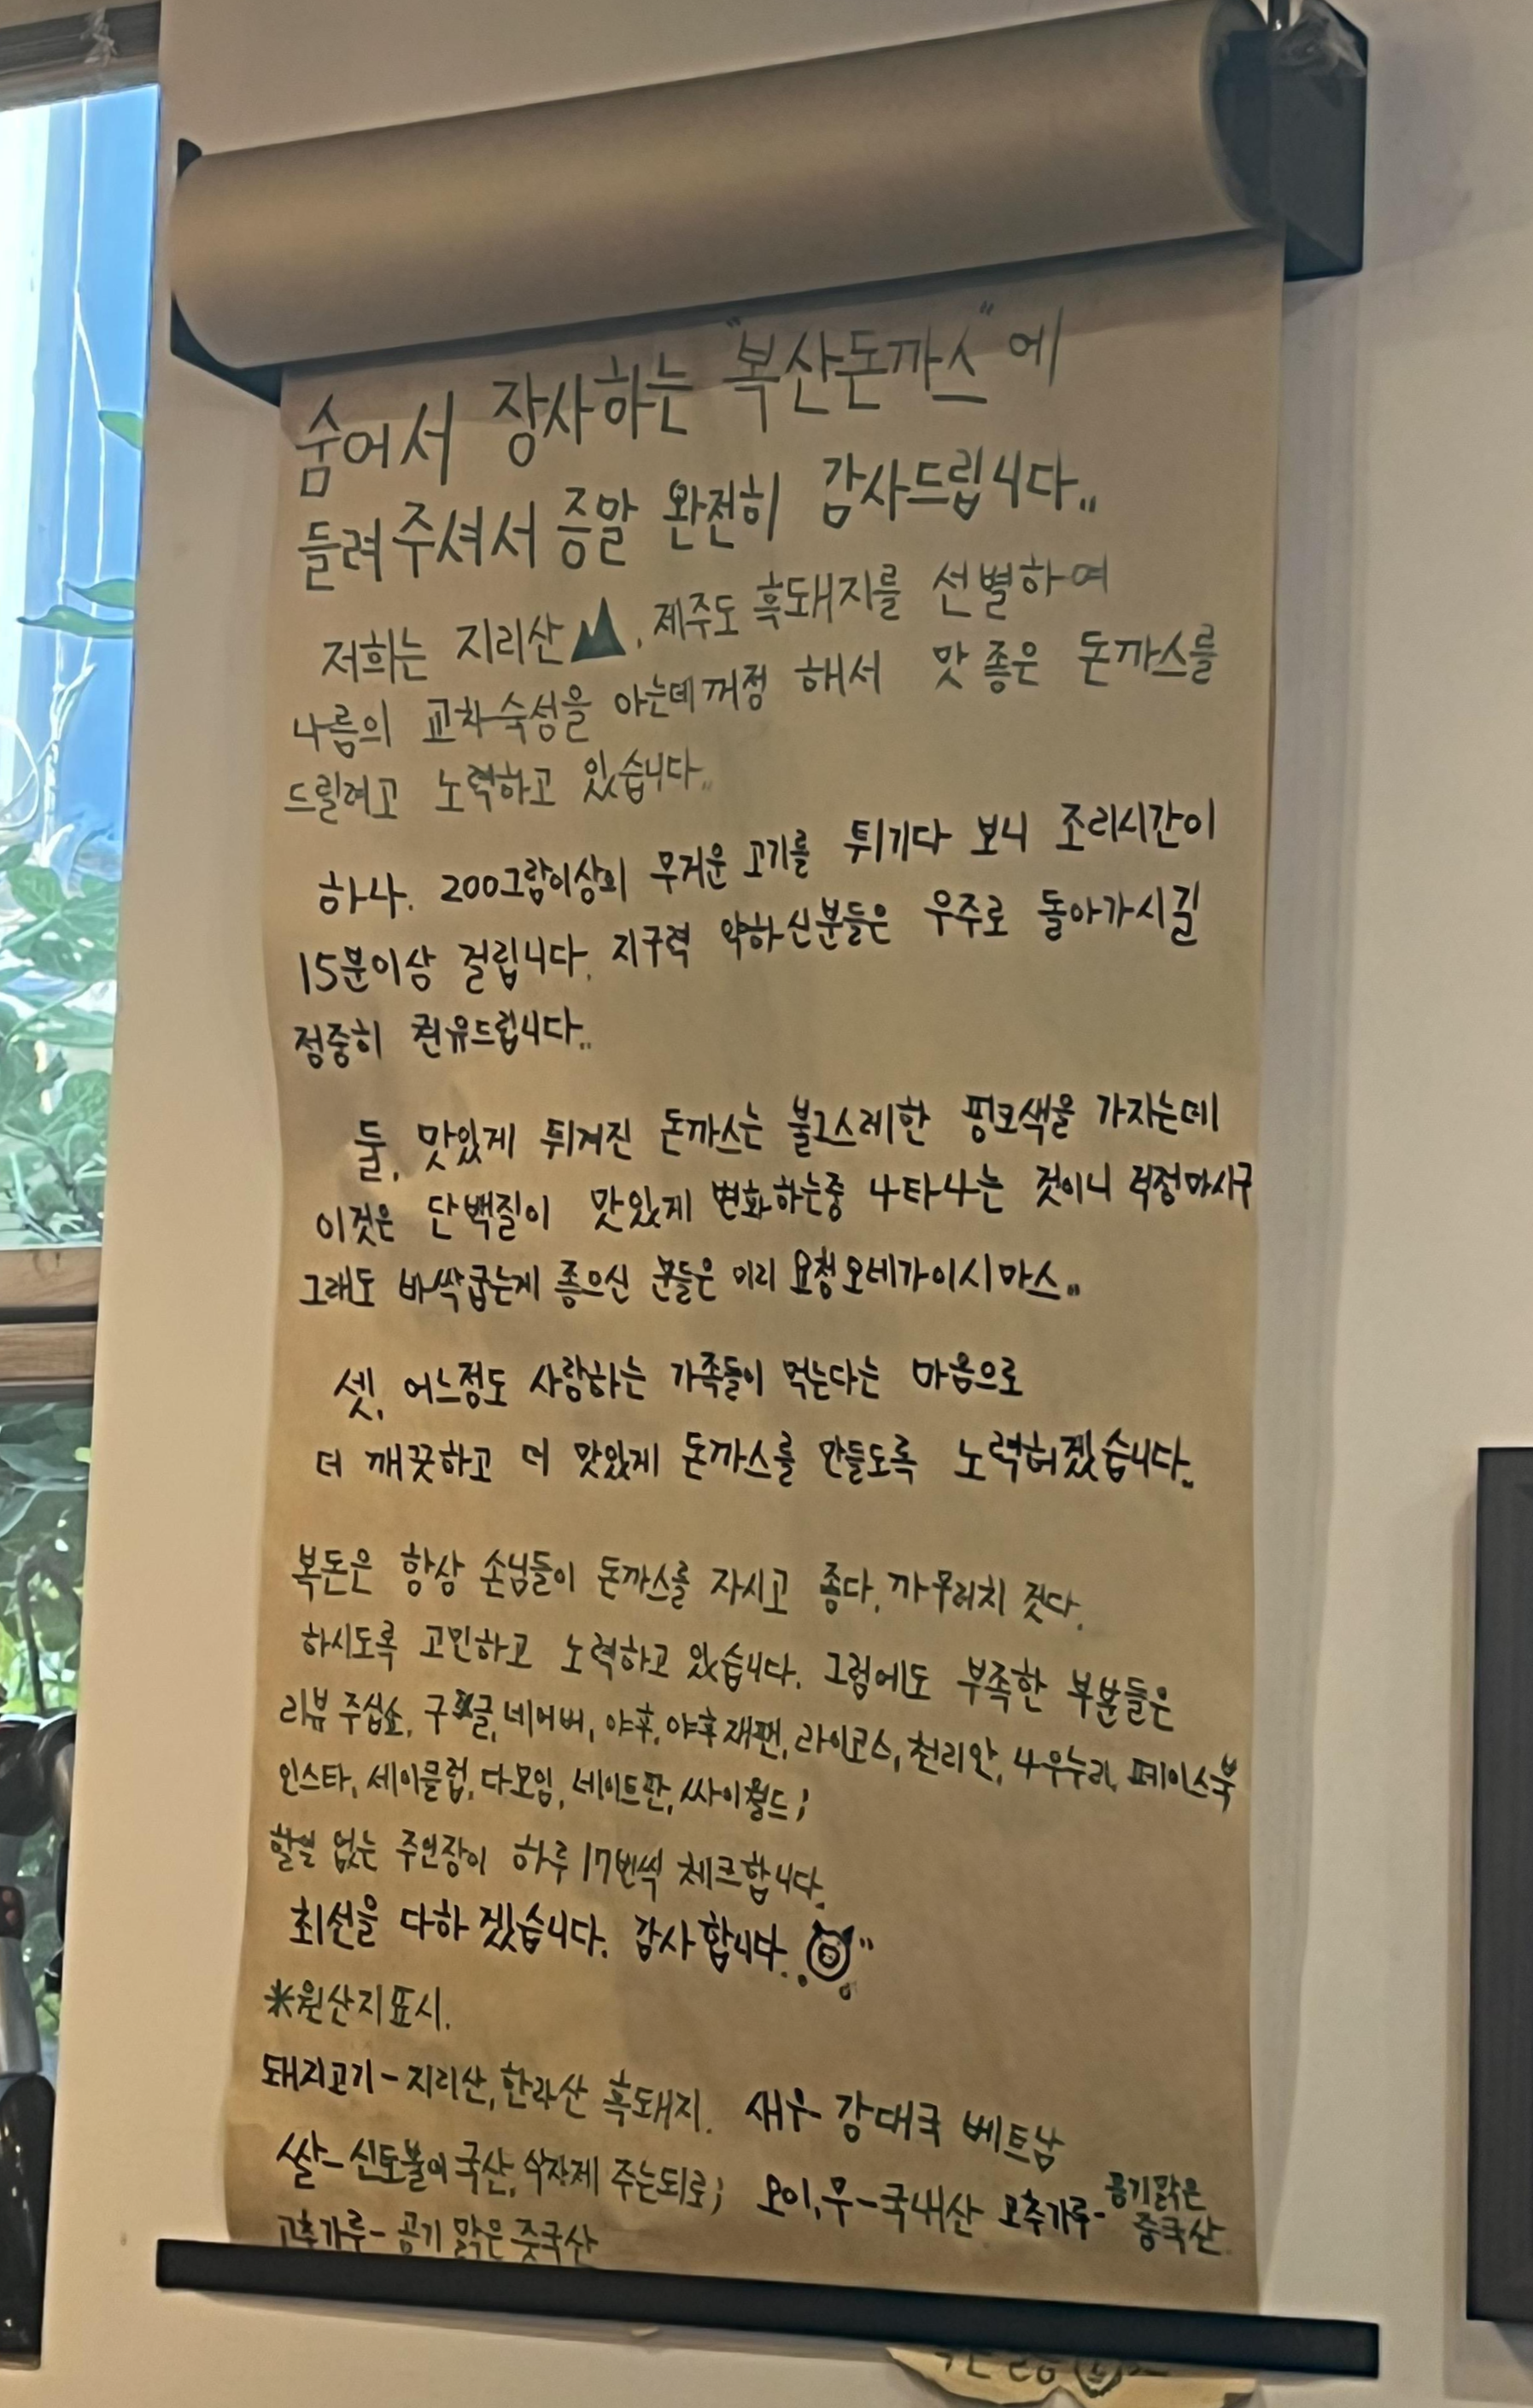 숨어서 장사하는 "복산돈까스"에
들려주셔서 증말 완전히 감사드립니다..
저희는 지리산, 제주도 흑돼지를 선별하여
나름의 교차숙성을 아는데꺼정 해서 맛 좋은 돈까스를
드릴려고 노력하고 있습니다..
하나. 200그람이상의 무거운 고기를 튀기다 보니 조리시간이
15분이상 걸립니다. 지구력 약하신분들은 우주로 돌아가시길
정중히 권유드립니다..
둘, 맛있게 튀겨진 돈까스는 불그스레한 핑크색을 가지는데
이것은 단백질이 맛있게 변화하는중 나타나는 것이니 걱정마시구
그래도 바싹굽는게 좋으신 분들은 미리 요청오네가이시마스..
셋, 어느정도 사랑하는 가족들이 먹는다는 마음으로
더 깨끗하고 더 맛있게 돈까스를 만들도록 노력허겠습니다..
복돈은 항상 손님들이 돈까스를 자시고 좋다, 까무러치겟다.
하시도록 고민하고 노력하고 있습니다. 그럼에도 부족한 부분들은
리뷰 주십쇼, 구글, 네이버, 야후, 야후재팬, 라이코스, 천리안, 나우누리, 페이스북
인스타, 세이클럽, 다모임, 네이트판, 싸이월드;
할일 없는 주인장이 하루 17번씩 체크합니다.
최선을 다하겠습니다. 감사합니다.
*원산지표시.
돼지고기-지리산, 한라산 흑돼지. 새우-강대국 베트남
쌀-신토불이국산, 삭자제 주는되로; 오이,무-국내산 고추가루-공기맑은 중국산.
고추가루-공기 맑은 중국산